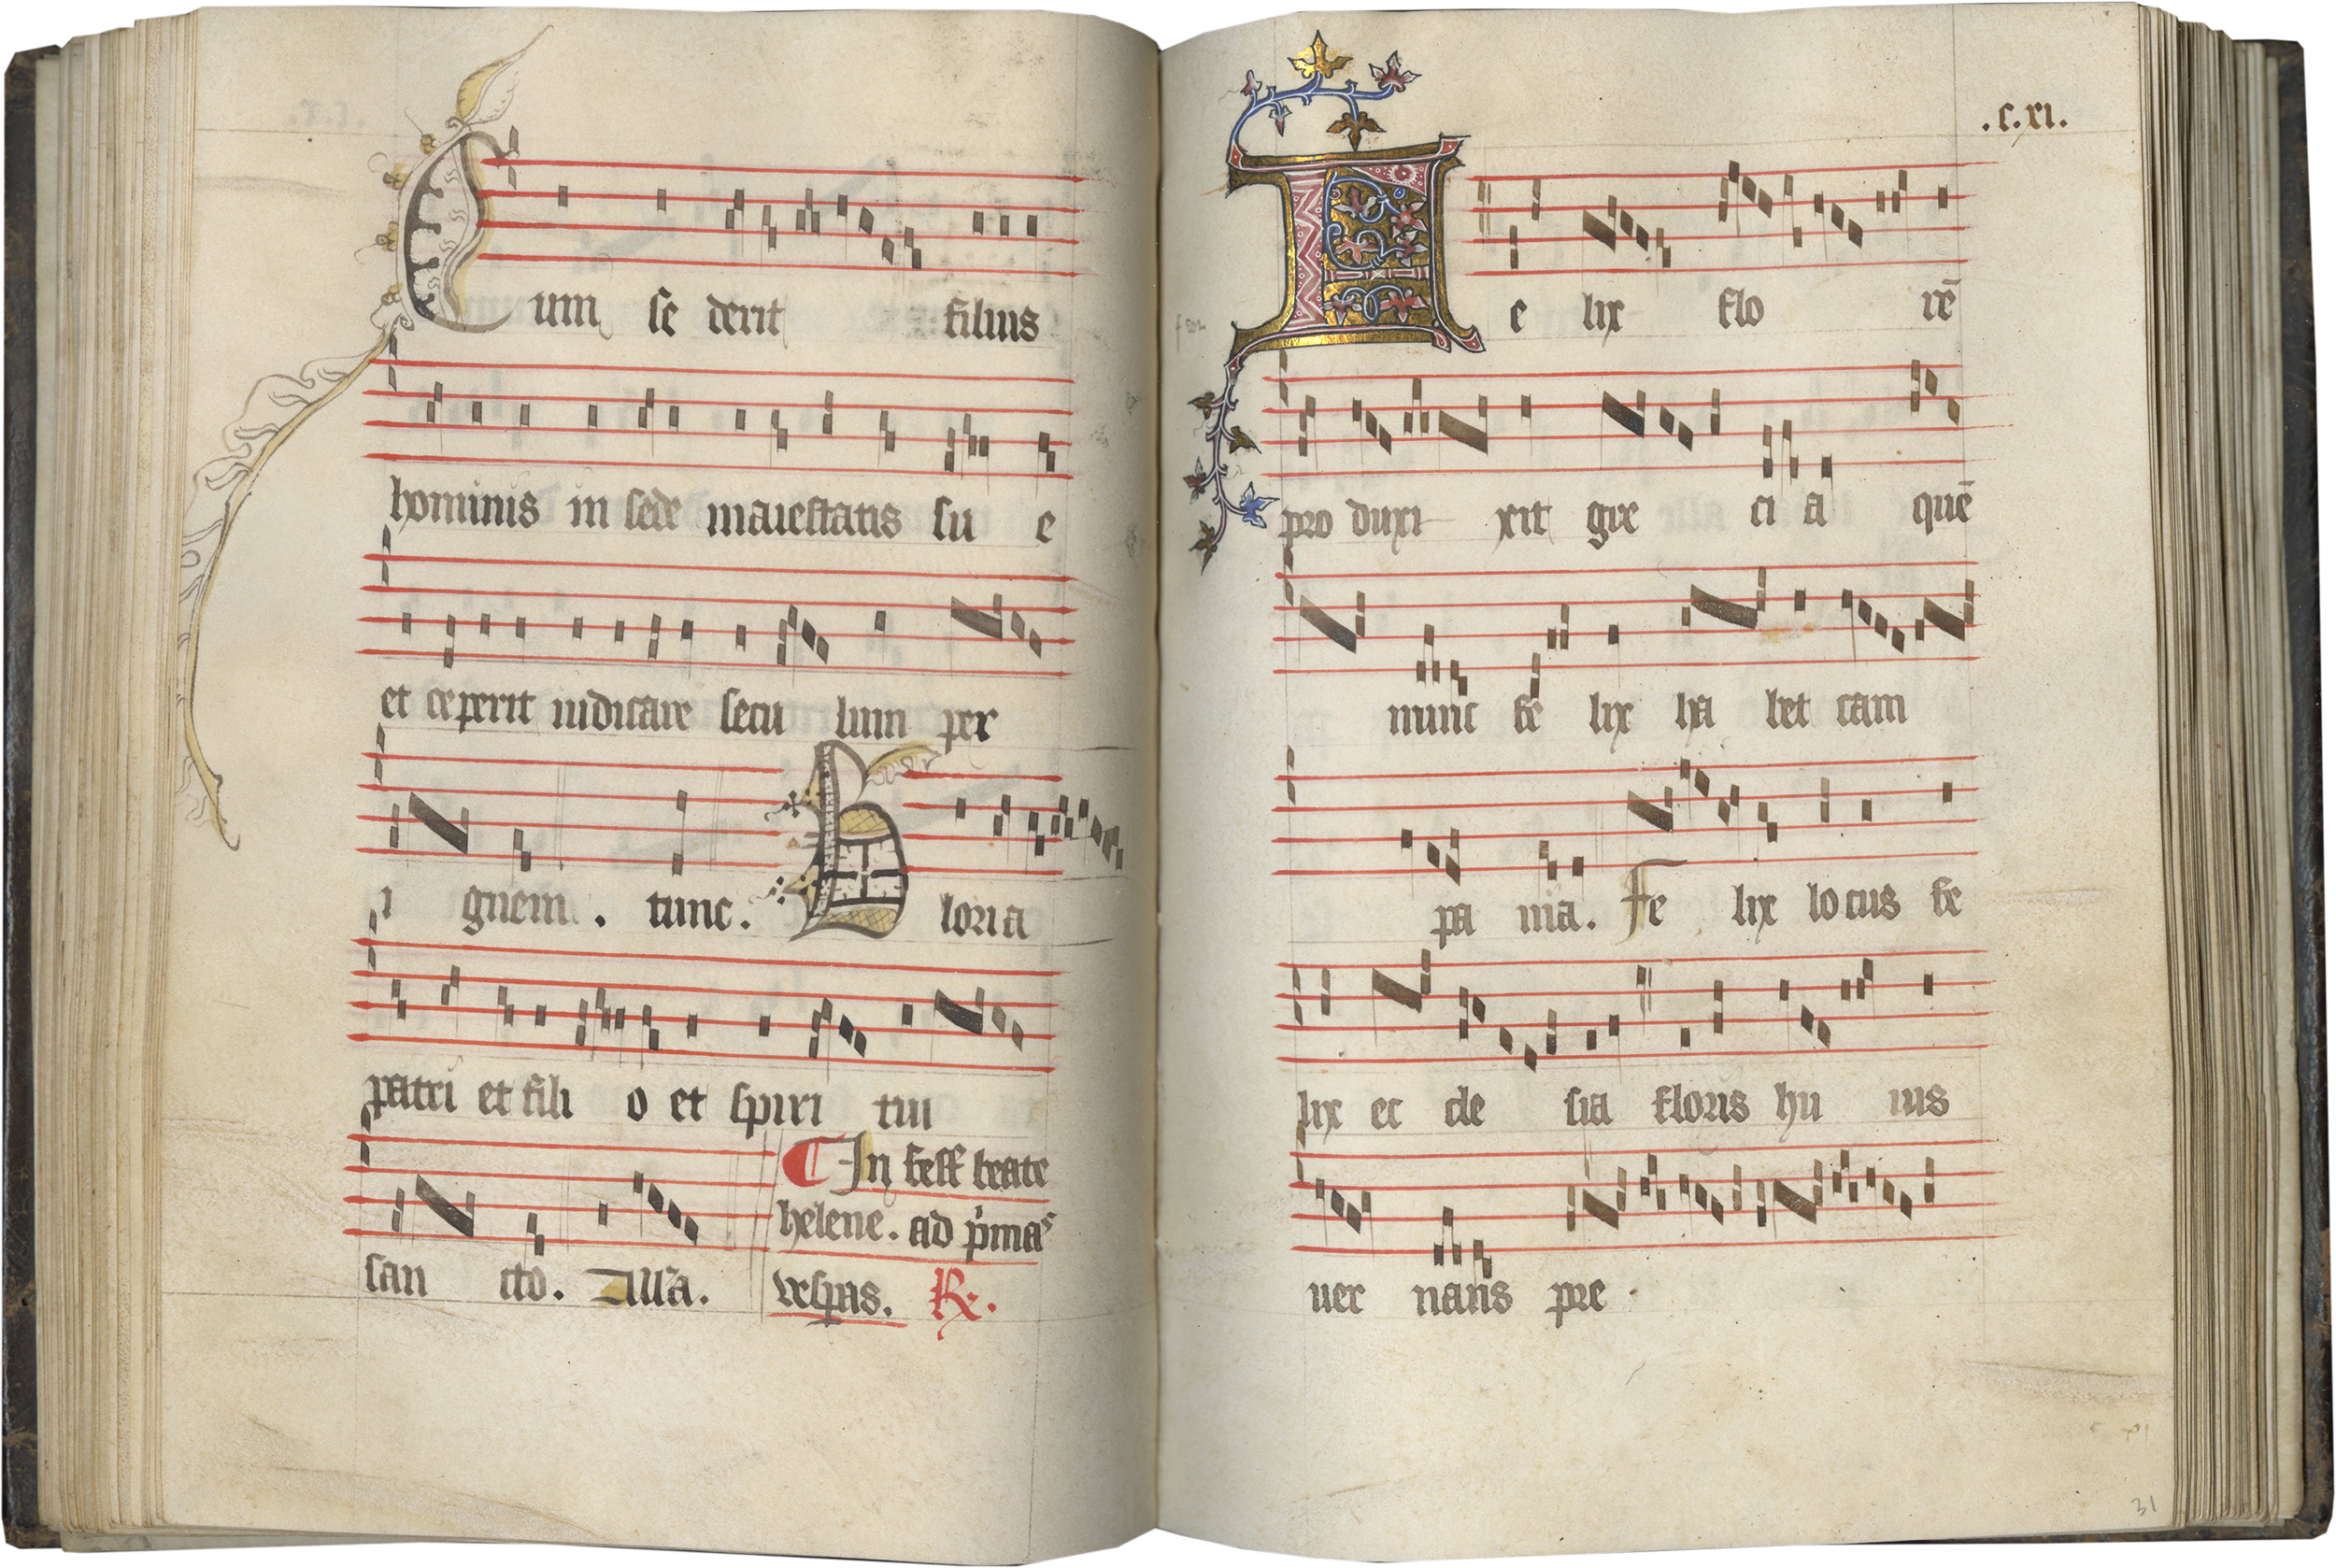 Cum se derit filius
hominis in sede maiestatis su e
et ceperit iudicare secu lum per
i gnem . tunc . Gloria
patri et fili o et spiri tui
san cto . Alla .
¶ In fest beate
helene . ad p'mas
vespas . R .
.c.xi.
Fe lix flo rē
pro duxi xit gre ci a quē
nunc fe lix ha bet cam
pa nia . Fe lix locus fe
lix ec cle sia floris hu ius
ver nans pre
31